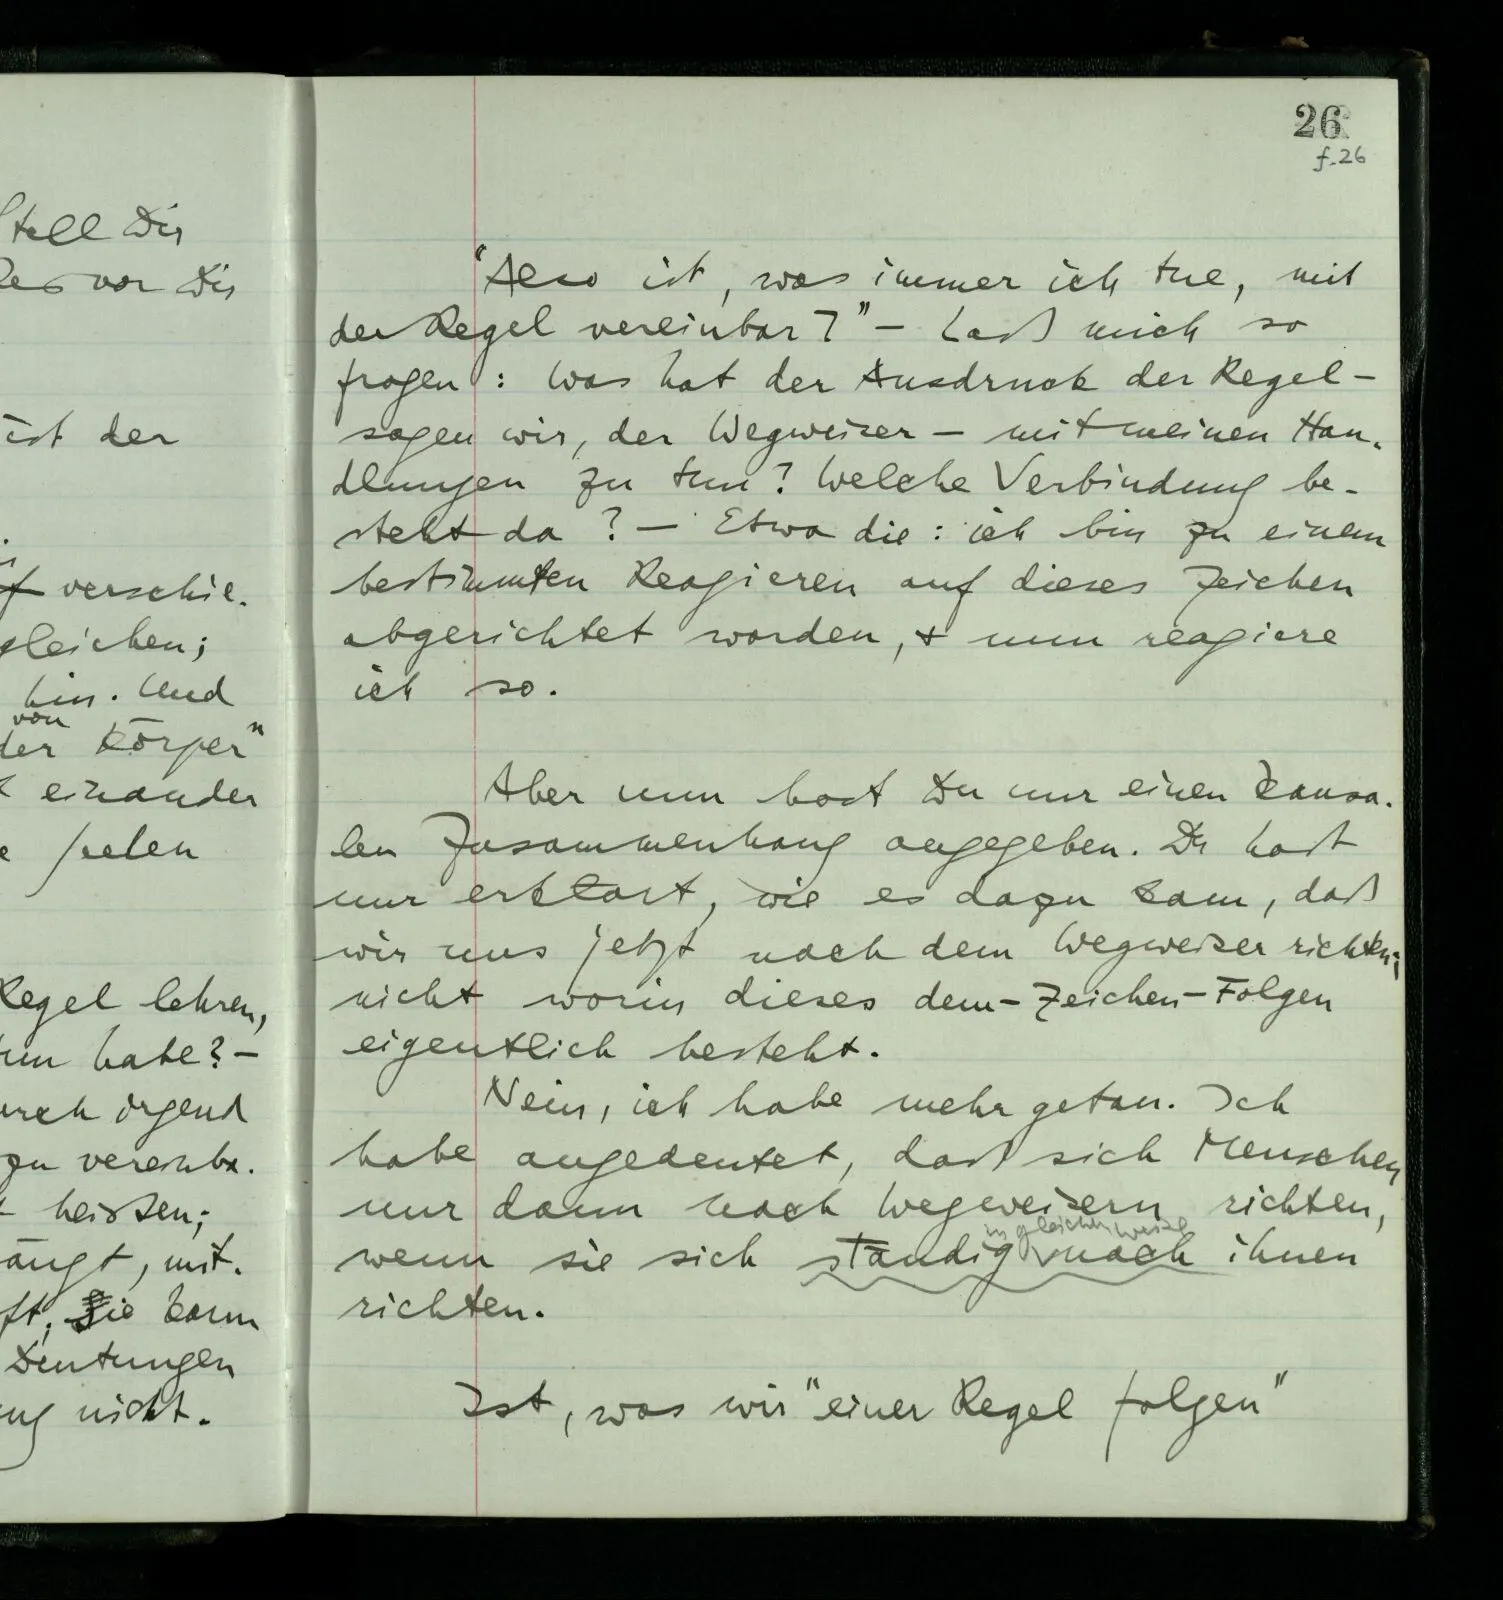 tell Dir
vor Dir
ist der
verschie-
gleichen;
hin. Und
von
der Körper"
einander
jeden
Regel lehren,
tun habe? –
urch irgend
zu vereinba-
heißen;
ängt, mit-
ft; Sie kann
Deutungen
ng nicht.
26
f.26
"Also ist, was immer ich tue, mit
der Regel vereinbar?" – Laß mich so
fragen: Was hat der Ausdruck der Regel –
sagen wir, der Wegweiser – mit meinen Han-
dlungen zu tun? Welche Verbindung be-
steht da? – Etwa die: ich bin zu einem
bestimmten Reagieren auf dieses Zeichen
abgerichtet worden, & nun reagiere
ich so.
Aber nun hast Du nur einen kausa-
len Zusammenhang angegeben. Du hast
nur erklärt, wie es dazu kam, daß
wir uns jetzt nach dem Wegweiser richten;
nicht worin dieses dem-Zeichen-Folgen
eigentlich besteht.
Nein, ich habe mehr getan. Ich
habe angedeutet, daß sich Menschen
nur dann nach Wegweisern richten,
in gleicher Weise
wenn sie sich ständig nach ihnen
richten.
Ist, was wir "einer Regel folgen"